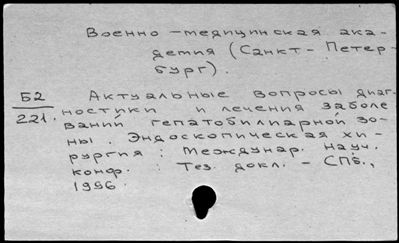 Военно-медицинская ака-
демия (Санкт-Петер-
бург).
Б2
221.
Актуальные вопросы диаг-
ностики и лечения заболе
ваний гепатобилиарной зо-
ны. Эндоскопическая хи-
рургия: Междунар. науч.
конф. : Тез. докл. - СПб.,
1996.